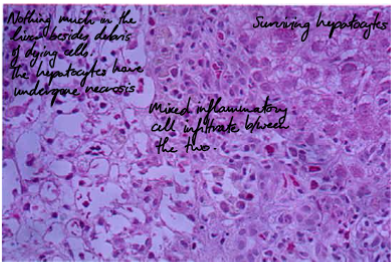 Nothing much in the
liver besides debris
of dying cells.
The hepatocytes have
undergone necrosis
Surviving hepatocytes
Mixed inflammatory
cell infiltrate b/ween
the two.